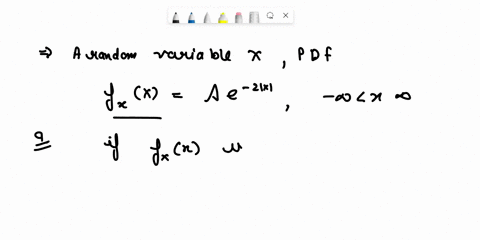 ⇒ A random variable x , PDF
fx (x) = A e^-2|x| , -∞ < x ∞
Q if fx (x)